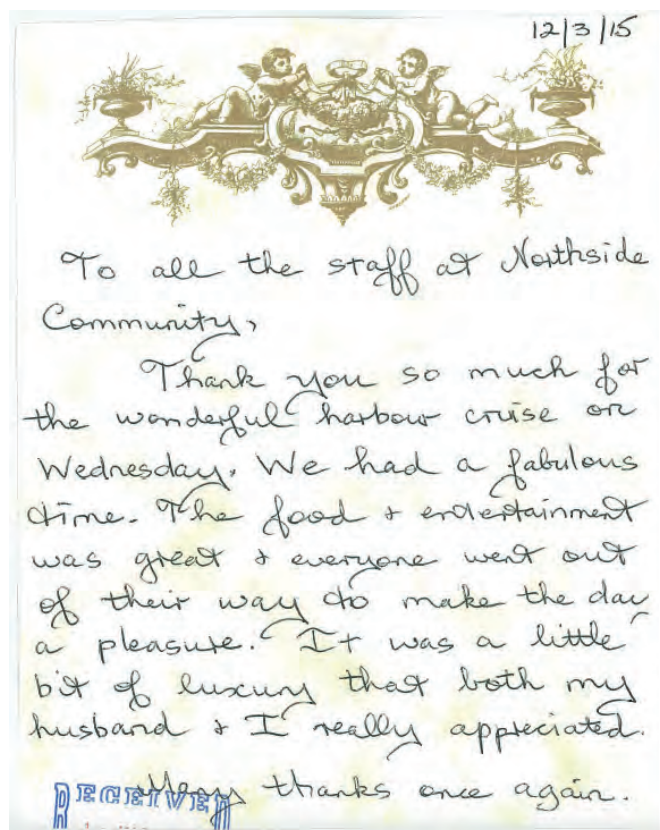 12/3/15
To all the staff at Northside
Community,
Thank you so much for
the wonderful harbour cruise on
Wednesday. We had a fabulous
time. The food + entertainment
was great + everyone went out
of their way to make the day
a pleasure. It was a little
bit of luxury that both my
husband + I really appreciated.
Many thanks once again.
RECEIVED